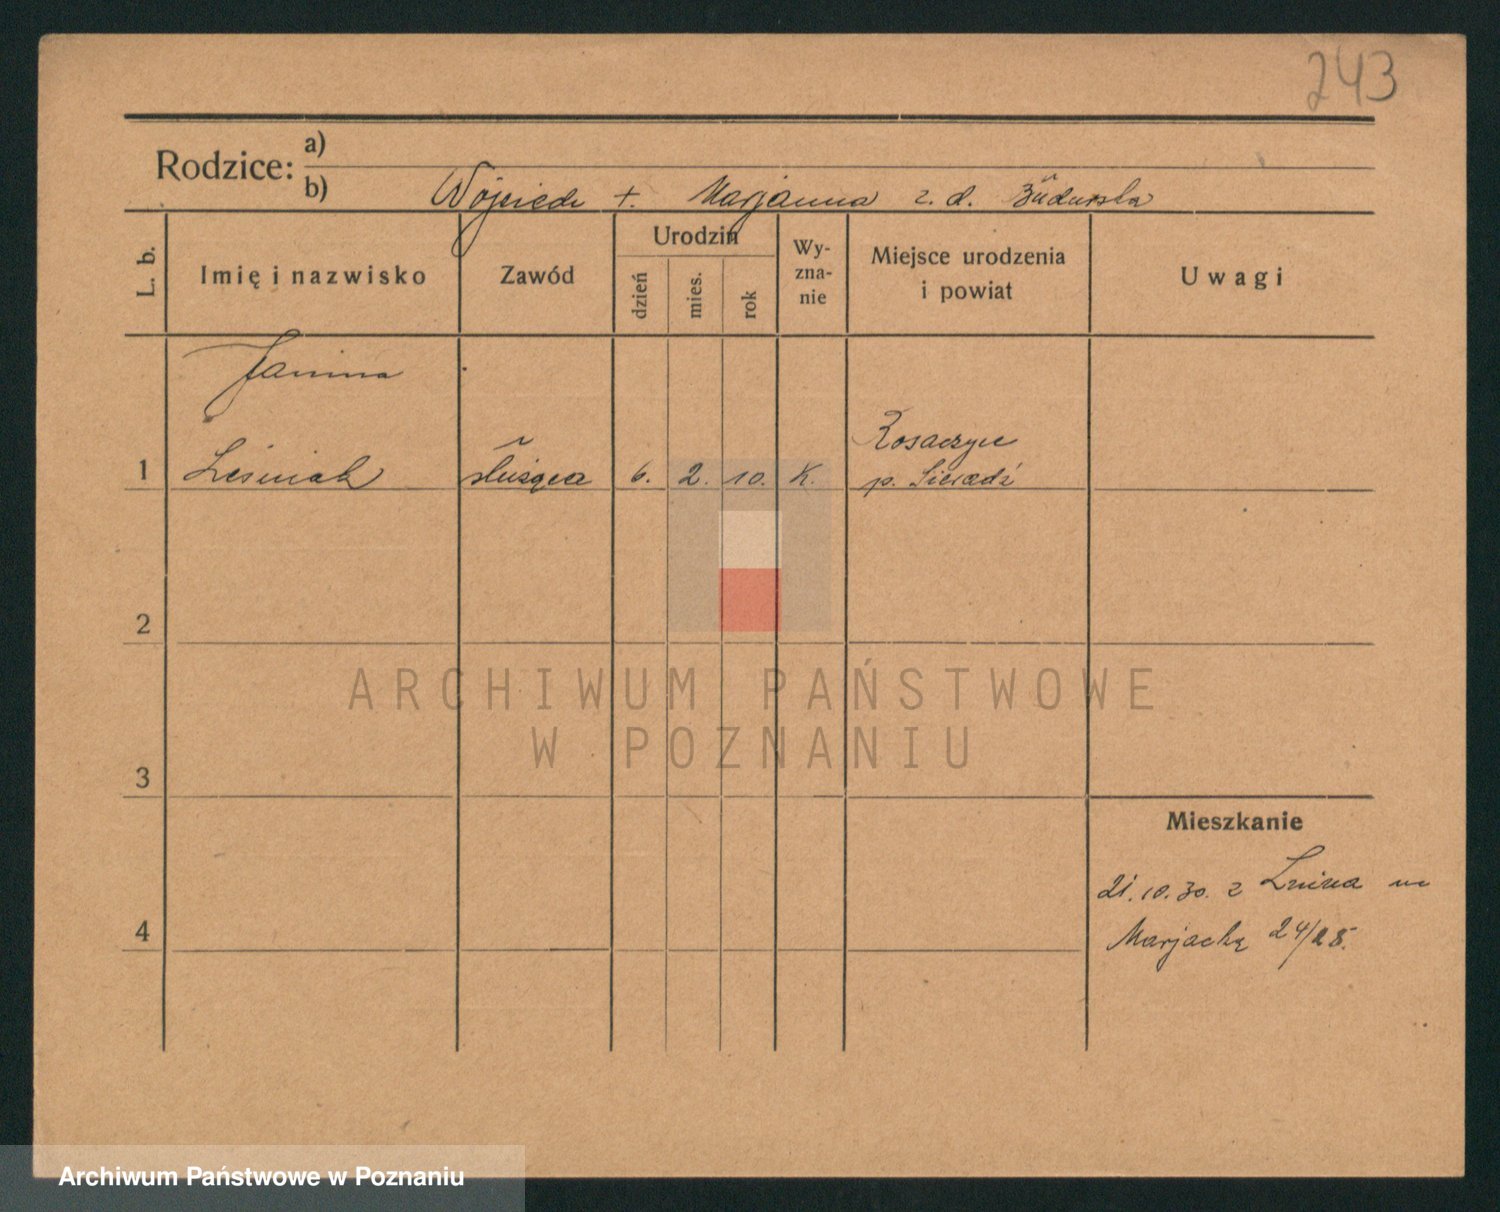 243
Rodzice: a)
b) Wojciech +. Marjanna z. d.
L. b.
Imię i nazwisko
Zawód
Urodzin
dzień
mies.
rok
Wy-
zna-
nie
Miejsce urodzenia
i powiat
Uwagi
Janina
1 Leśniak służąca 6. 2. 10. K.
p. Sieradź
2
3
4
Mieszkanie
21.10.30. z Żnina na
24/25.
ARCHIWUM PAŃSTWOWE
W POZNANIU
Archiwum Państwowe w Poznaniu